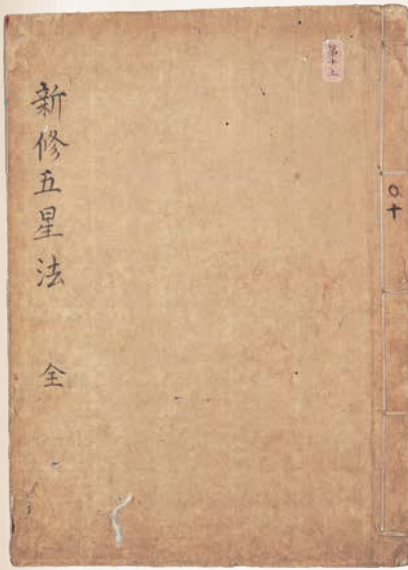 新修五星法　全
〇十